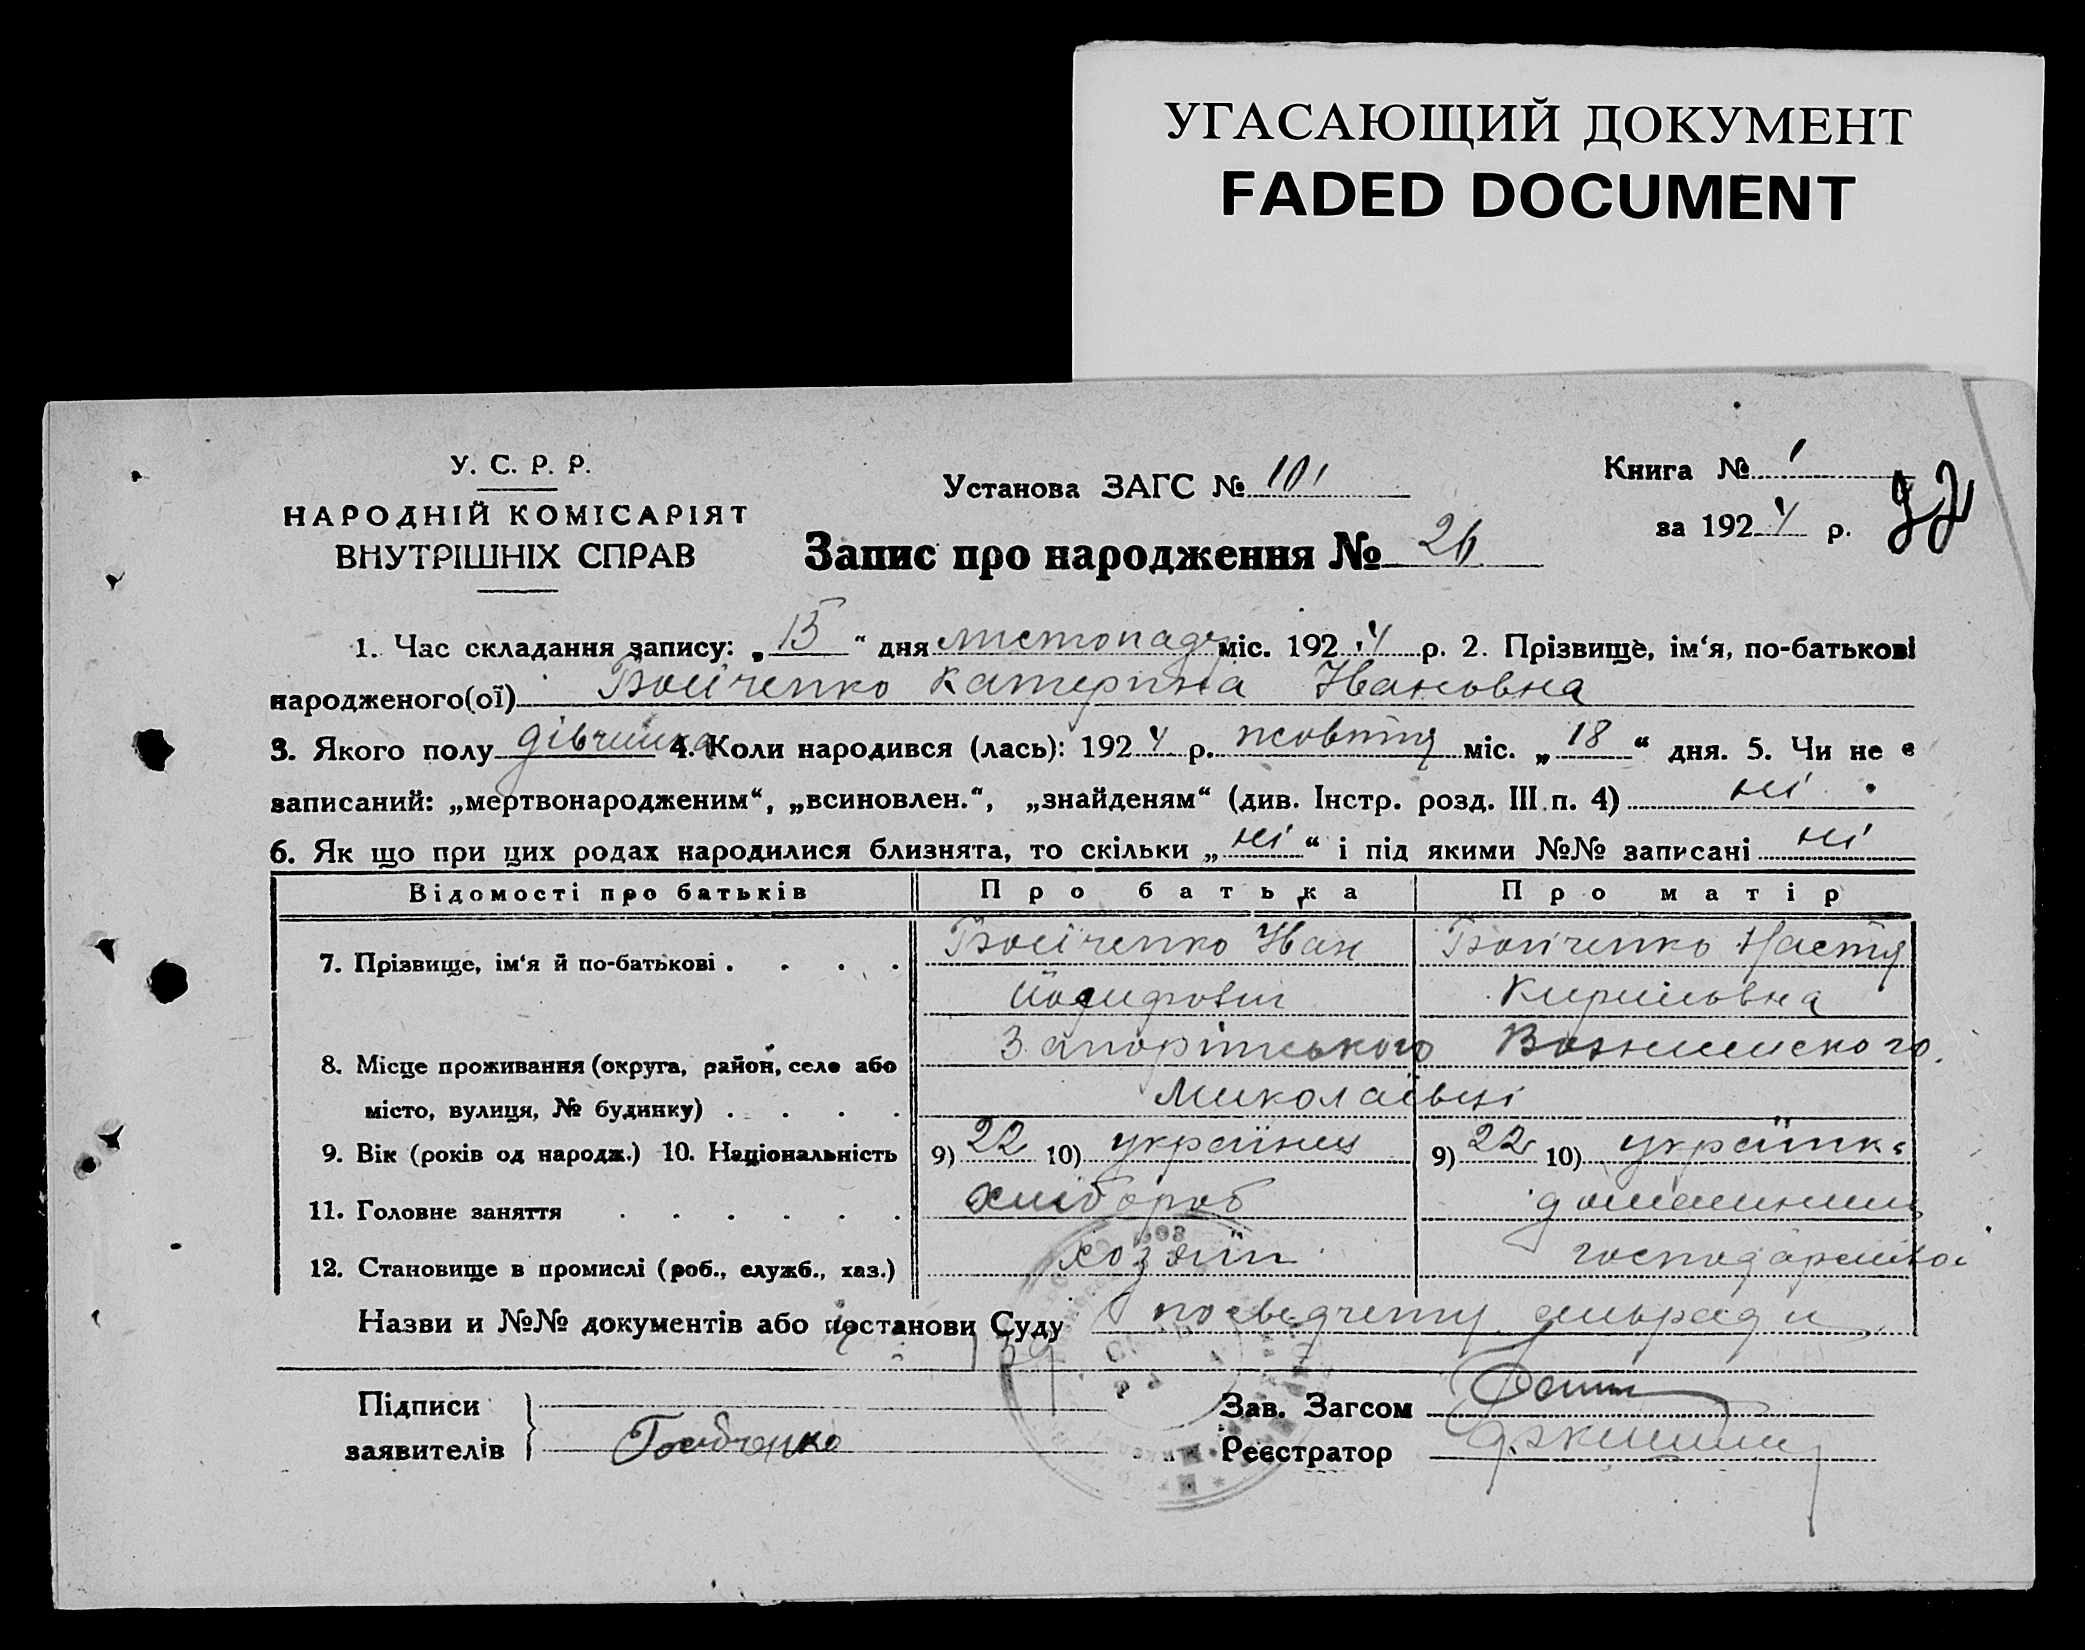 УГАСАЮЩИЙ ДОКУМЕНТ
FADED DOCUMENT
У. С. Р. Р.
НАРОДНІЙ КОМІСАРІЯТ
ВНУТРІШНІХ СПРАВ
Установа ЗАГС № 101
Запис про народження № 26
Книга № 1
за 1924 р.
1. Час складання запису: „ 13 “ дня листопаду міс. 1924 р. 2. Прізвище, ім‘я, по-батькові
народженого(ої) Бойченко Катерина Ивановна
3. Якого полу дівчинка 4. Коли народився (лась): 1924 р. жовтня міс. „ 18 “ дня. 5. Чи не є
записаний: „мертвонародженим“, „всиновлен.“, „знайденям“ (див. Інстр. розд. III п. 4) ні
6. Як що при цих родах народилися близнята, то скільки „ ні “ і під якими №№ записані ні
Відомості про батьків Про батька Про матір
7. Прізвище, ім‘я й по-батькові . . . . Бойченко Иван Бойченко Настя
Кириловна
8. Місце проживання (округа, район, село або Запорітського Вознишиского
місто, вулиця, № будинку) . . . . Миколаївці
9. Вік (років од народж.) 10. Національність 9) 22 10) українец 9) 22 10) українка
11. Головне заняття . . . . . . хлібороб
12. Становище в промислі (роб., служб., хаз.) хозяїн
Назви и №№ документів або постанови Суду сильради
Підписи
заявителів Бойченко
Зав. Загсом
Реєстратор